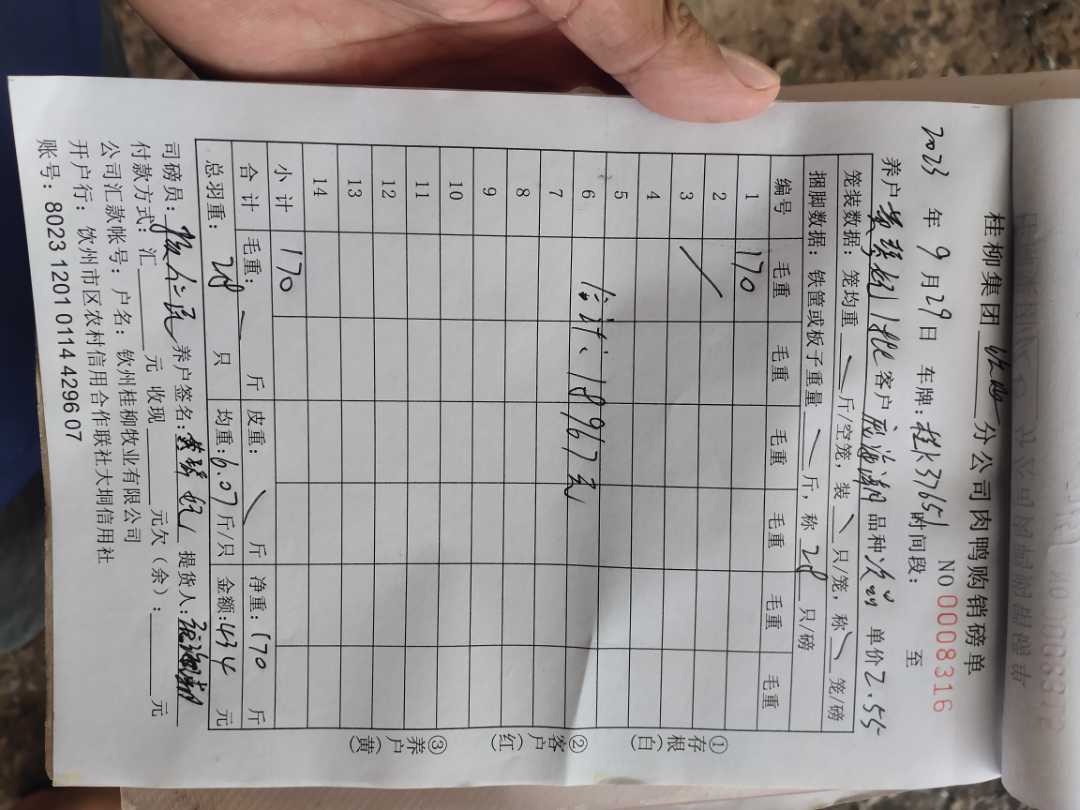 桂柳集团 分公司肉鸭购销磅单
NO 0008316
2023 年 9 月 29 日 车牌：桂K37651 时间段： 至
养户 客户 品种 次品 单价 2.55
笼装数据：笼均重 / 斤/空笼，装 \ 只/笼，称 \ 笼/磅
捆脚数据：铁筐或板子重量 / 斤，称 28 只/磅
编号 毛重 毛重 毛重 毛重 毛重 毛重
1 170
2
3
4
5
6
7
8
9
10
11
12
13
14
合计：18967元
小计 170
合计 毛重： 斤 皮重： \ 斤 净重：170 斤
总羽重： 28 只 均重：6.07 斤/只 金额：434 元
司磅员： 养户签名： 提货人：
付款方式：汇 元 收现 元欠（余）： 元
公司汇款帐号：户名：钦州桂柳牧业有限公司
开户行：钦州市区农村信用合作联社大垌信用社
账号：8023 1201 0114 4296 07
①存根（白）
②客户（红）
③养户（黄）